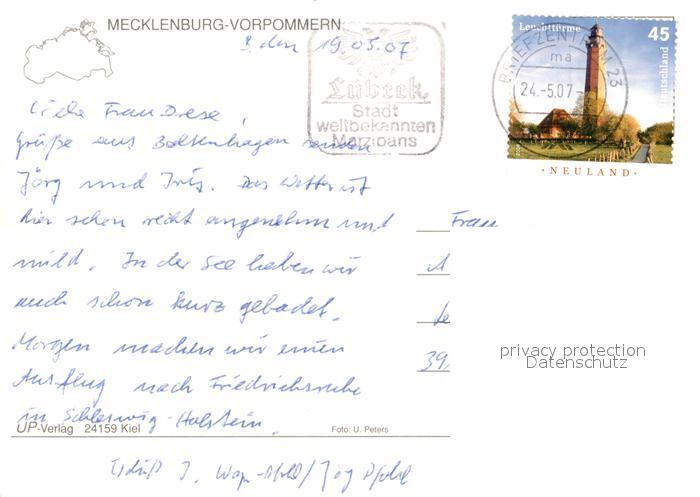 MECKLENBURG-VORPOMMERN
B. den 19.05.07
Lübeck
Stadt
weltbekannten
Marzipans
Leuchttürme 45
Deutschland
BRIEFZENTRUM 23
ma
24.-5.07
·NEULAND·
Liebe Frau Drese,
Grüße aus Boltenhagen senden
Jörg und Iris. Das Wetter ist
hier schon recht angenehm und
mild. In der See haben wir
auch schon kurz gebadet.
Morgen machen wir einen
Ausflug nach Friedrichsruhe
in Schleswig-Holstein.
Frau
39
privacy protection
Datenschutz
UP-Verlag 24159 Kiel
Foto: U. Peters
Gruß I.